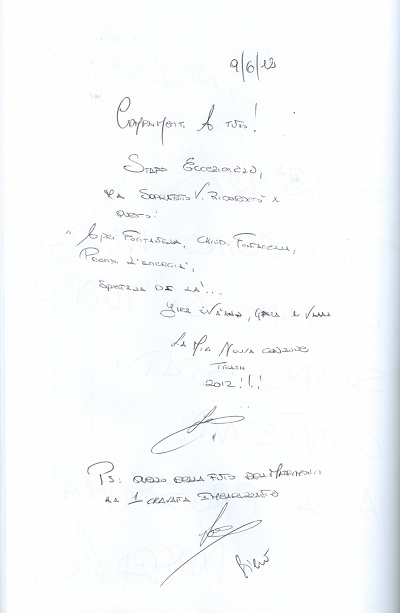 9/6/12
Complimenti A tutti!
Staff Eccezionale,
ma soprattutto Vi ricorderò x
questo:
"Apri Fontanella, Chiudi Fontanella,
Prendi l'energia,
Spostala de là...
Gira
La Mia Nuova canzone
Trash
2012!!!
PS: quello della foto del Matrimonio
ha 1 cravatta